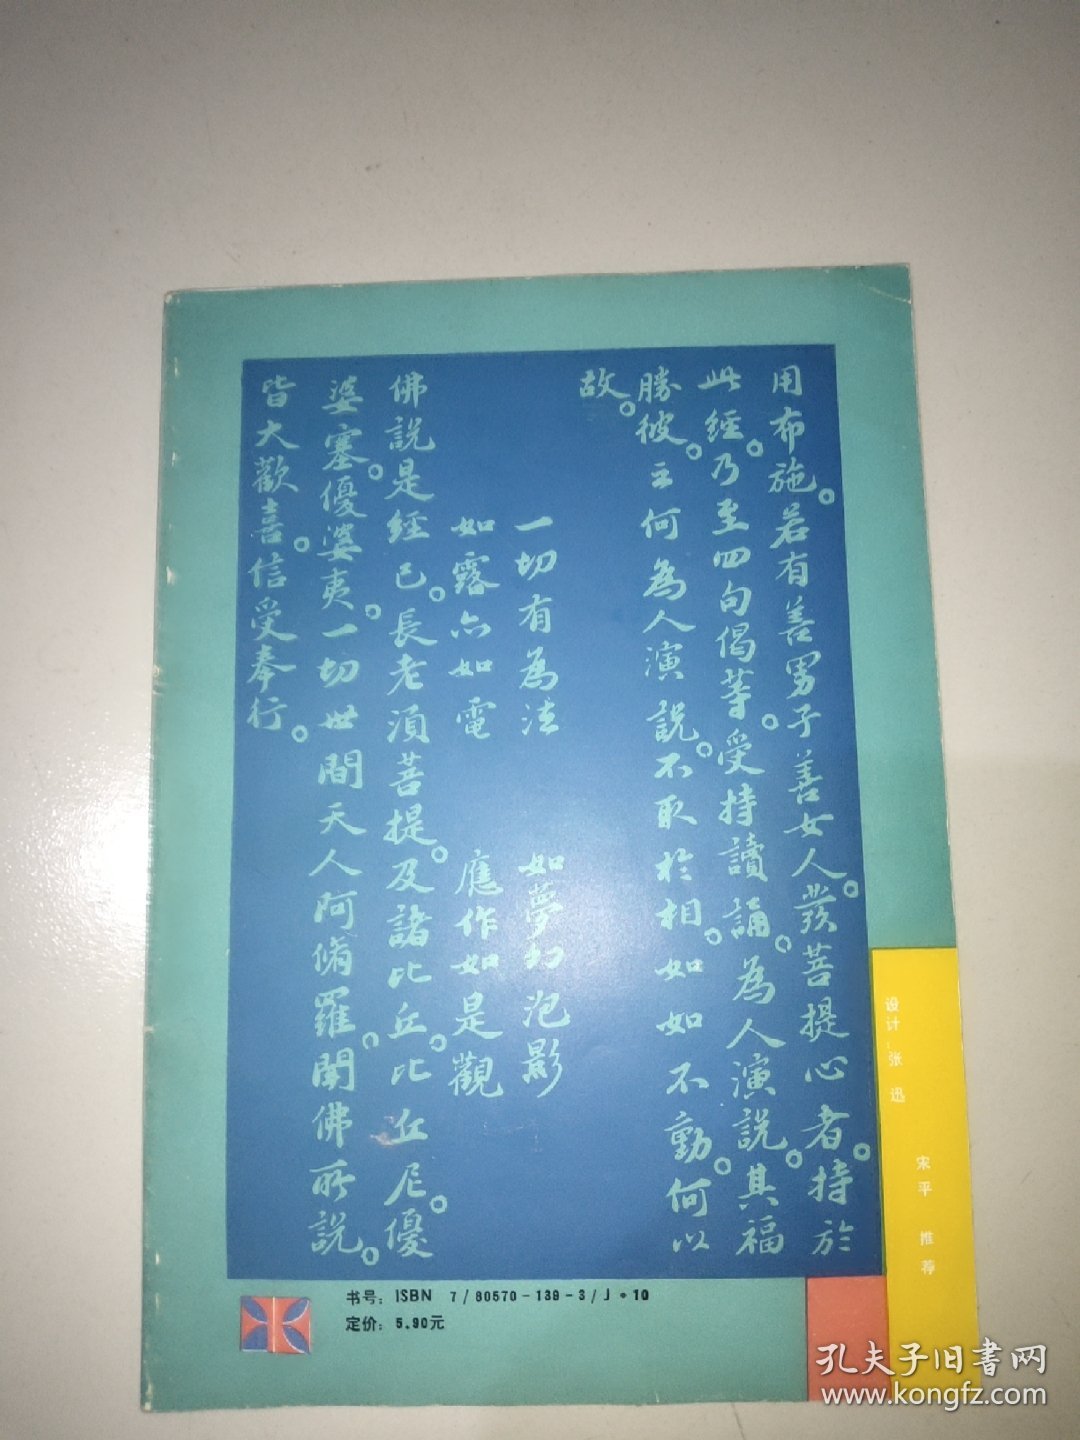 用布施。若有善男子善女人。發菩提心者。持於
此經。乃至四句偈等。受持讀誦。為人演說。其福
勝彼。云何為人演說。不取於相。如如不動。何以
故。
一切有為法 如夢幻泡影
如露亦如電 應作如是觀
佛說是經已。長老須菩提。及諸比丘。比丘尼。優
婆塞。優婆夷。一切世間天人阿脩羅。聞佛所說。
皆大歡喜。信受奉行。
设计：张迅
宋平 推荐
书号：ISBN 7/80570-139-3/J·10
定价：5.90元
孔夫子旧書网
www.kongfz.com